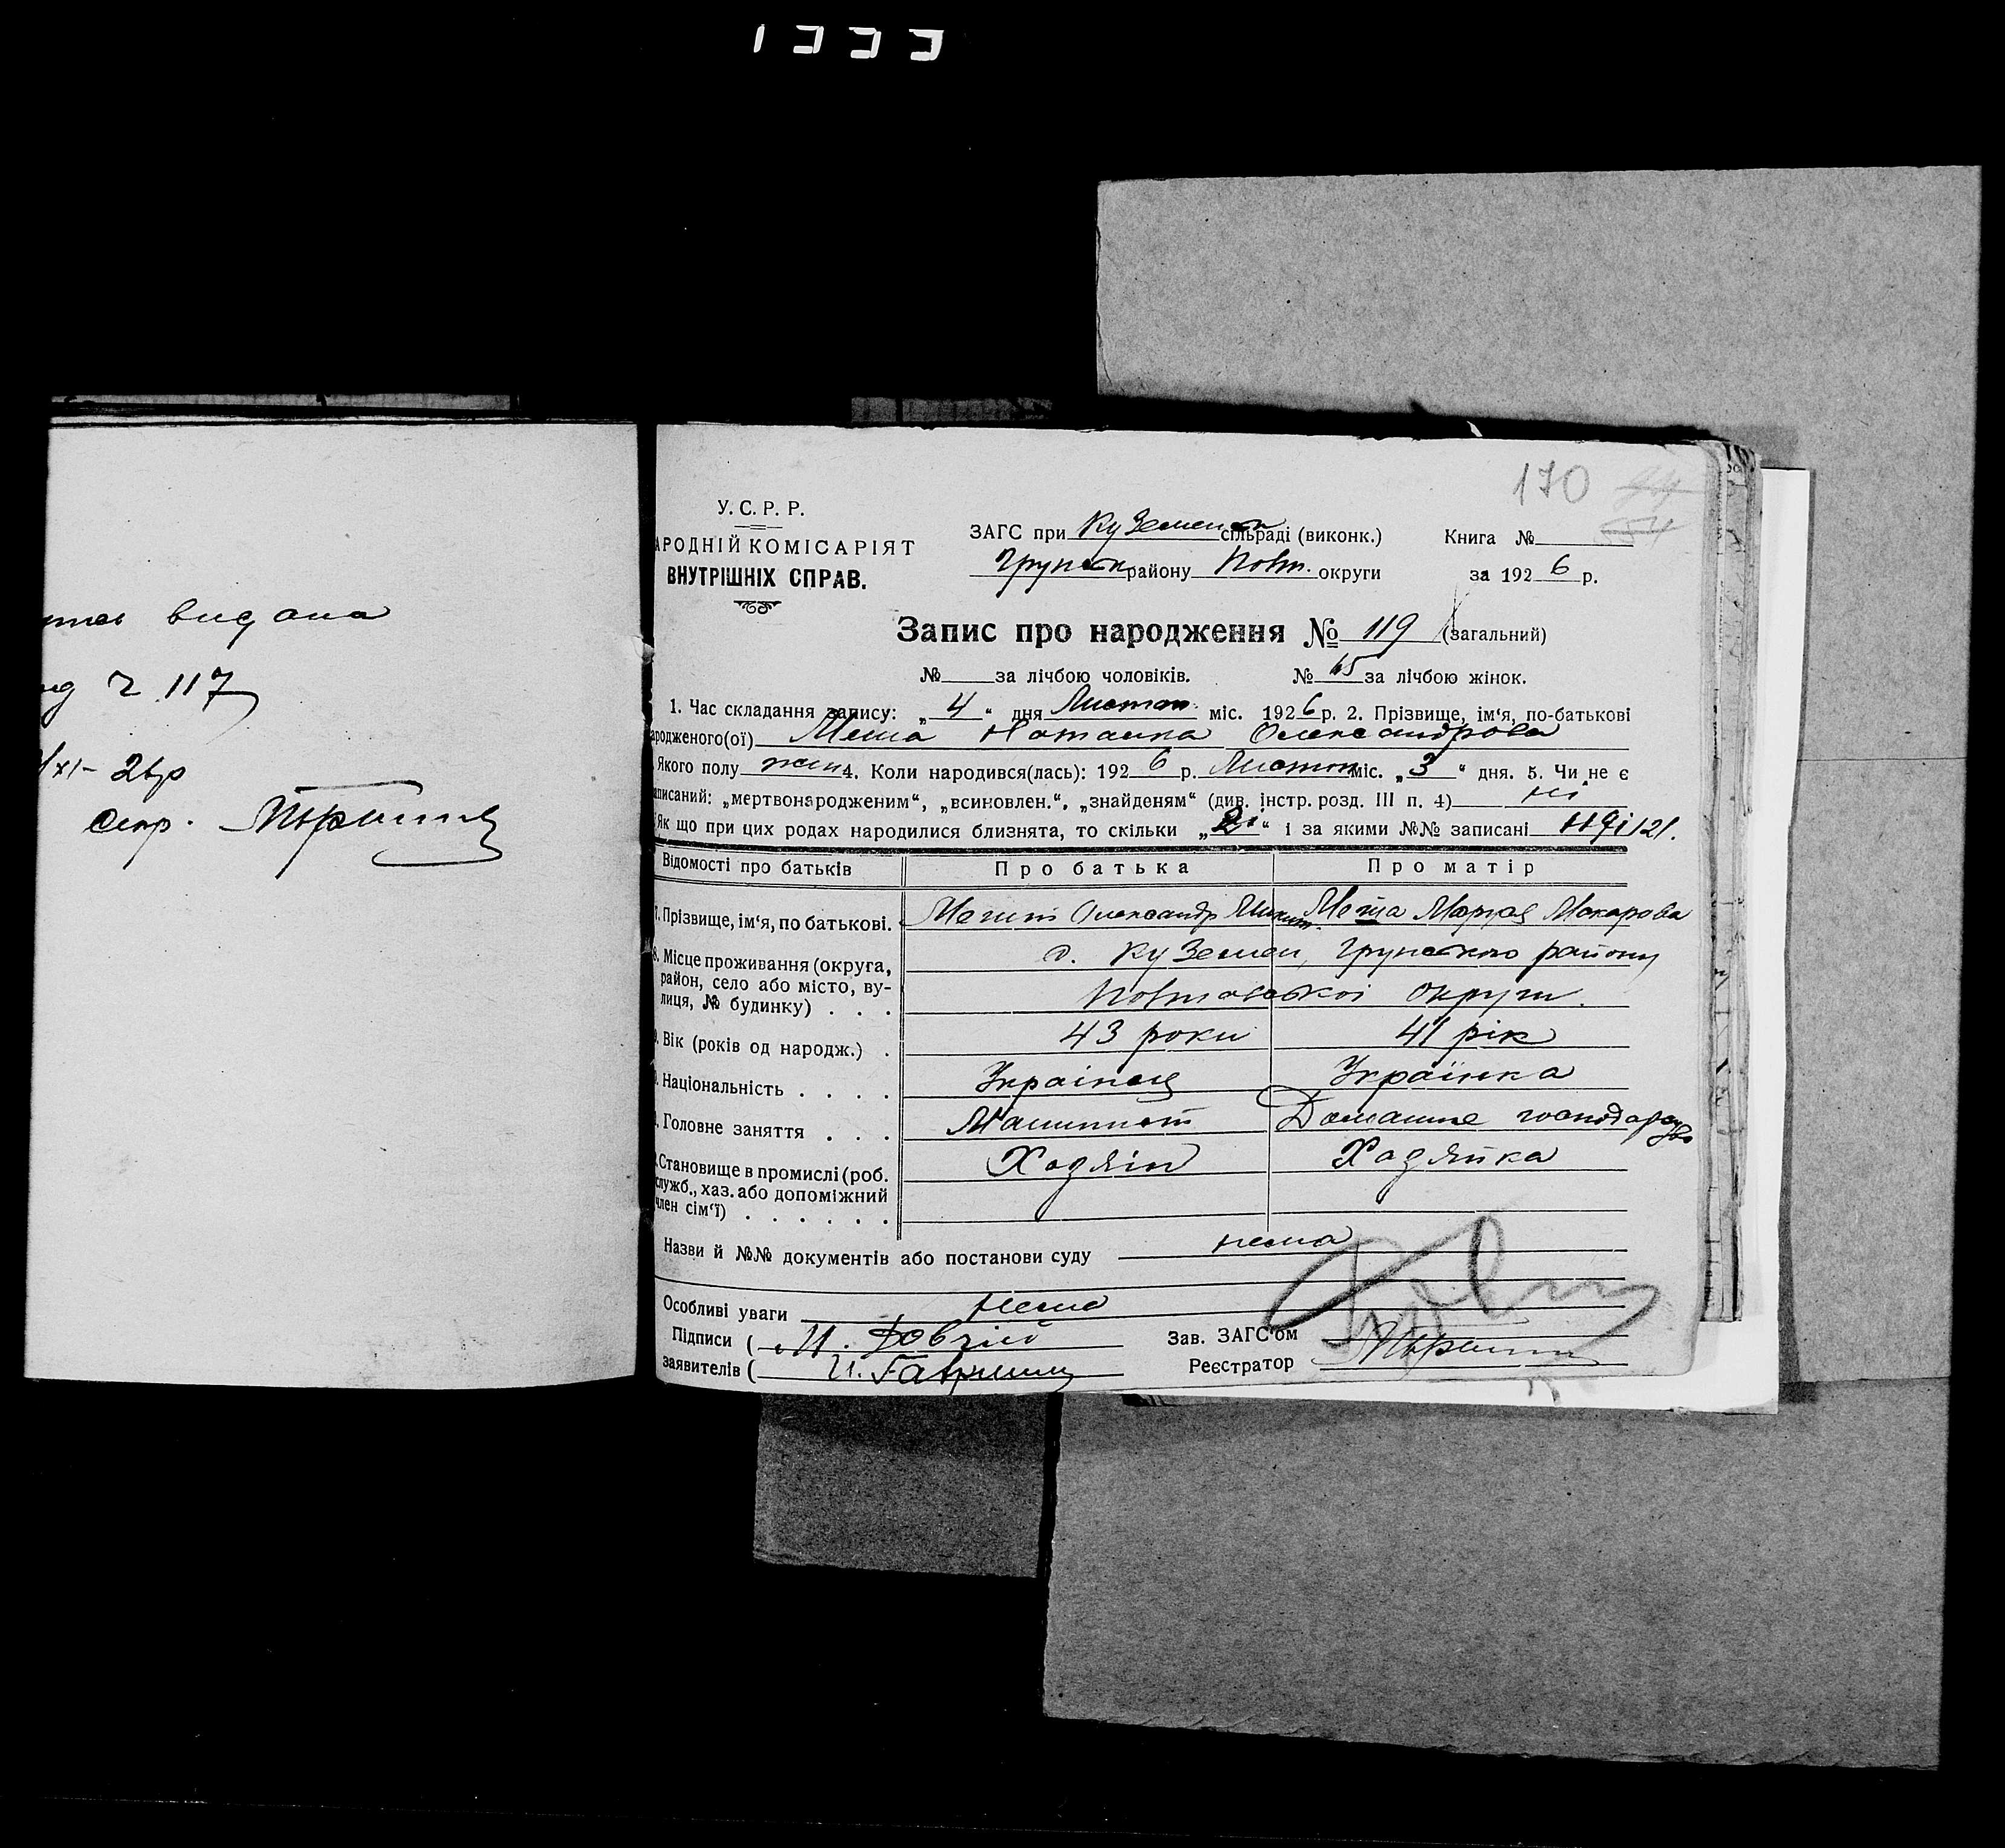 видана
ч. 117
секр.
170
У. С. Р. Р.
АРОДНІЙ КОМІСАРІЯТ
ВНУТРІШНІХ СПРАВ.
ЗАГС при Куземен сільраді (виконк.) Книга №
Грунськ району Полт. округи за 1926 р.
Запис про народження № 119 (загальний)
№ за лічбою чоловіків. № 65 за лічбою жінок.
1. Час складання запису: „4“ дня Листоп. міс. 1926 р. 2. Прізвище, ім‘я, по-батькові
ародженого(ої) Меша Наталка Олександрова
Якого полу жін 4. Коли народився(лась): 1926 р. Листоп міс. „3“ дня. 5. Чи не є
аписаний: „мертвонародженим“, „всиновлен.“, „знайденям“ (див. інстр. розд. III п. 4) ні
Як що при цих родах народилися близнята, то скільки „2“ і за якими №№ записані 119 і 121.
Відомості про батьків Про батька Про матір
7. Прізвище, ім‘я, по батькові. Олександр Микит. Меша Марія Макарова
8. Місце проживання (округа, с. Куземен, Грунського району
район, село або місто, ву-
лиця, № будинку) . . . Полтавської округи.
9. Вік (років од народж.) . 43 роки 41 рік
Національність . . . . Українец Українка
Головне заняття . . . Машиніст Домашне господарство
Становище в промислі (роб. Хазяін Хазяйка
служб., хаз. або допоміжний
член сім‘ї) . . . . . .
Назви й №№ документів або постанови суду нема
Особливі уваги нема
Підписи ( Зав. ЗАГС‘ом
заявителів ( Реєстратор